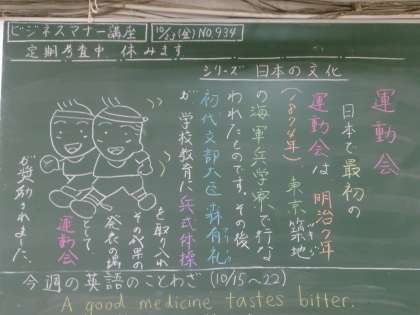 ビジネスマナー講座 10/15(金) NO.934
定期考査中、休みます
シリーズ 日本の文化
運動会
日本で最初の
運動会は 明治7年
(1874年) 東京築地
の海軍兵学寮で行な
われたものです。その後、
初代文部大臣 森有礼
が 学校教育に兵式体操
を取り入れ
その効果の
発表の場
として
運動会
が奨励されました。
今週の英語のことわざ (10/15〜22)
A good medicine tastes bitter.